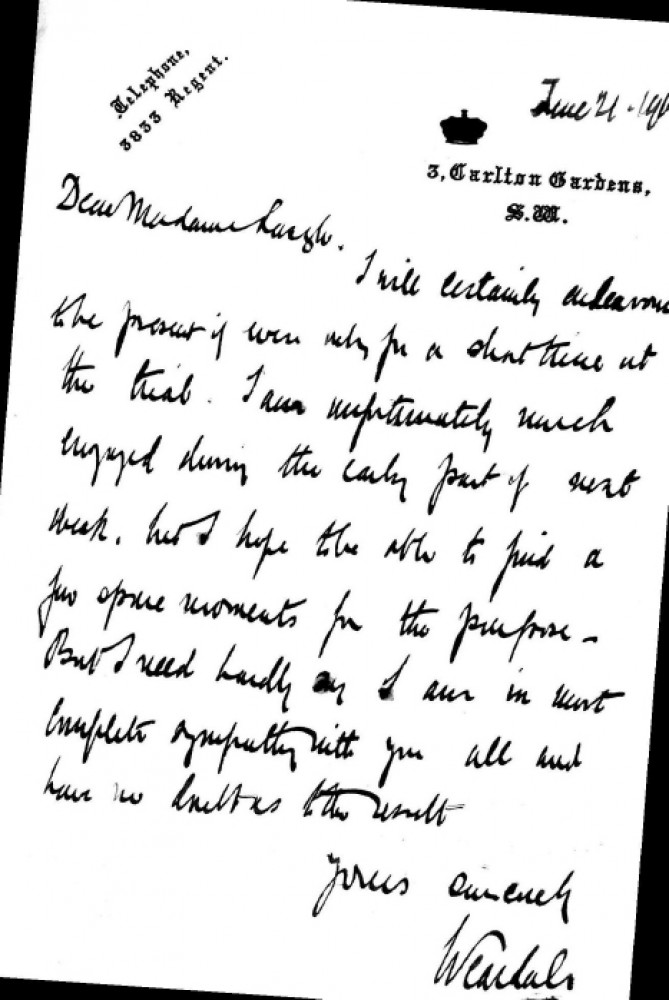 Telephone,
3833 Regent.
June 21 · 190
3, Carlton Gardens,
S.W.
Dear Madame
I will certainly endeavour
to be present if even only for a short time at
the trial. I am unfortunately much
engaged during the early part of next
week, but I hope to be able to find a
few spare moments for the purpose –
But I need hardly say I am in most
complete sympathy with you all and
have no doubt as to the result
Yours sincerely
Weardale